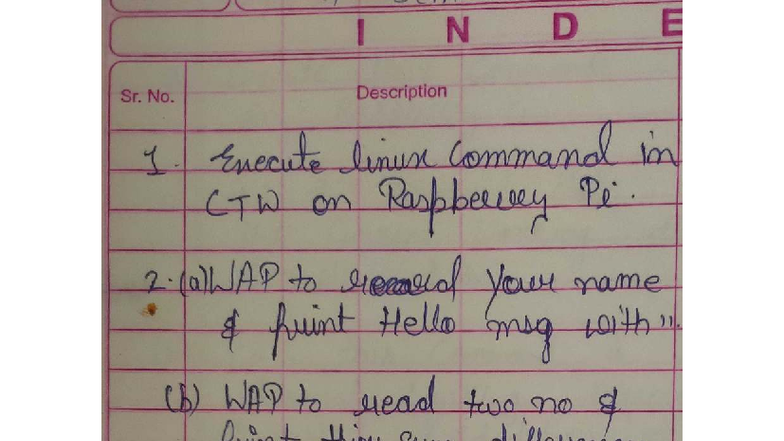 I N D E
Sr. No. Description
1. Execute linux Command in
CTW on Raspberry Pi.
2. (a) WAP to read your name
& print Hello msg with ".
(b) WAP to read two no &
print